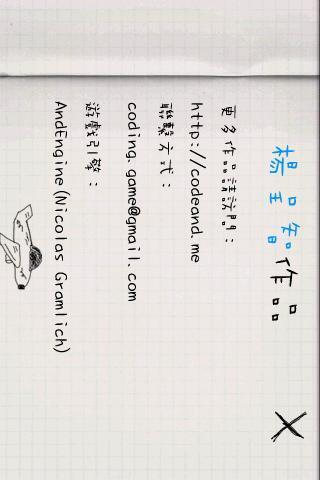 楊玉智作品
更多作品請訪問：
http://codeand.me
聯繫方式：
coding.game@gmail.com
遊戲引擎：
AndEngine(Nicolas Gramlich)